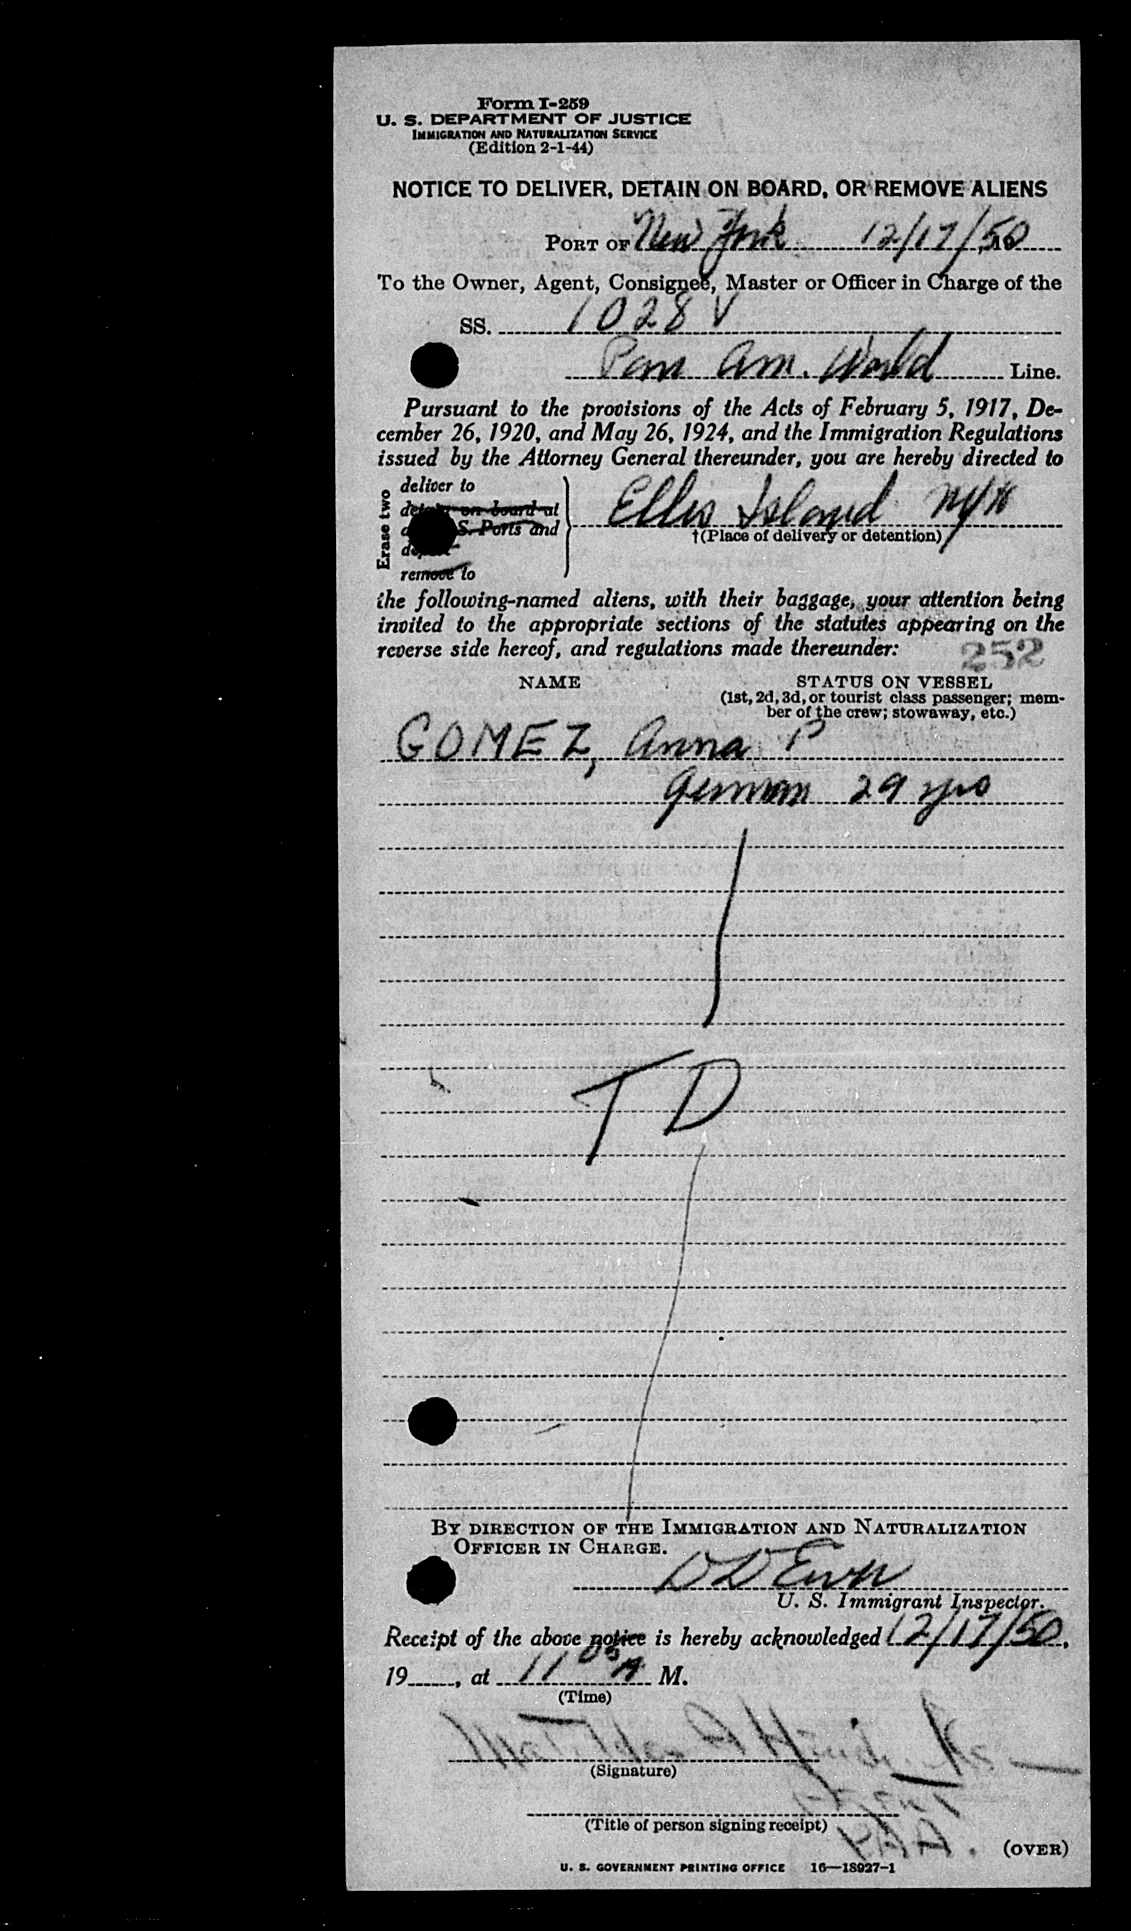 Form I-259
U. S. DEPARTMENT OF JUSTICE
IMMIGRATION AND NATURALIZATION SERVICE
(Edition 2-1-44)
NOTICE TO DELIVER, DETAIN ON BOARD, OR REMOVE ALIENS
PORT OF New York 12/17/50
To the Owner, Agent, Consignee, Master or Officer in Charge of the
SS. 1028 V
Pan Am. World Line.
Pursuant to the provisions of the Acts of February 5, 1917, De-
cember 26, 1920, and May 26, 1924, and the Immigration Regulations
issued by the Attorney General thereunder, you are hereby directed to
Erase two
deliver to
detain on board at
S. Ports and
remove to
Ellis Island NYH
†(Place of delivery or detention)
the following-named aliens, with their baggage, your attention being
invited to the appropriate sections of the statutes appearing on the
reverse side hereof, and regulations made thereunder:
252
NAME STATUS ON VESSEL
(1st, 2d, 3d, or tourist class passenger; mem-
ber of the crew; stowaway, etc.)
GOMEZ, Anna P
German 29 yrs
TD
BY DIRECTION OF THE IMMIGRATION AND NATURALIZATION
OFFICER IN CHARGE.
U. S. Immigrant Inspector.
Receipt of the above notice is hereby acknowledged 12/17/50,
19____, at 11 05 A M.
(Time)
(Signature)
(Title of person signing receipt)
(OVER)
U. S. GOVERNMENT PRINTING OFFICE 16—18927-1